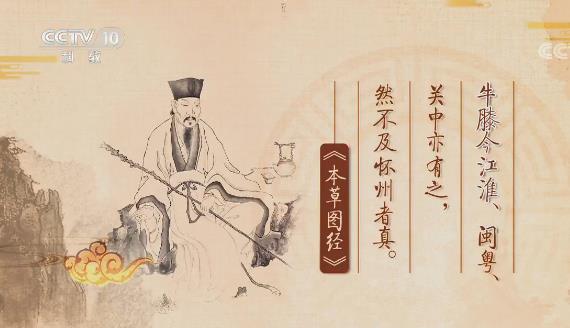 CCTV 10
科教
牛膝今江淮、闽粤、
关中亦有之，
然不及怀州者真。
《本草图经》
CC